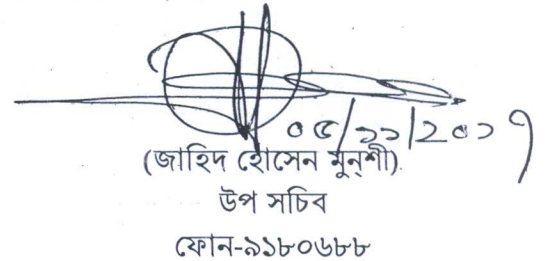 ০৫/১১/২০১৭
(জাহিদ হোসেন মুন্শী)
উপ সচিব
ফোন-৯১৮০৬৮৮